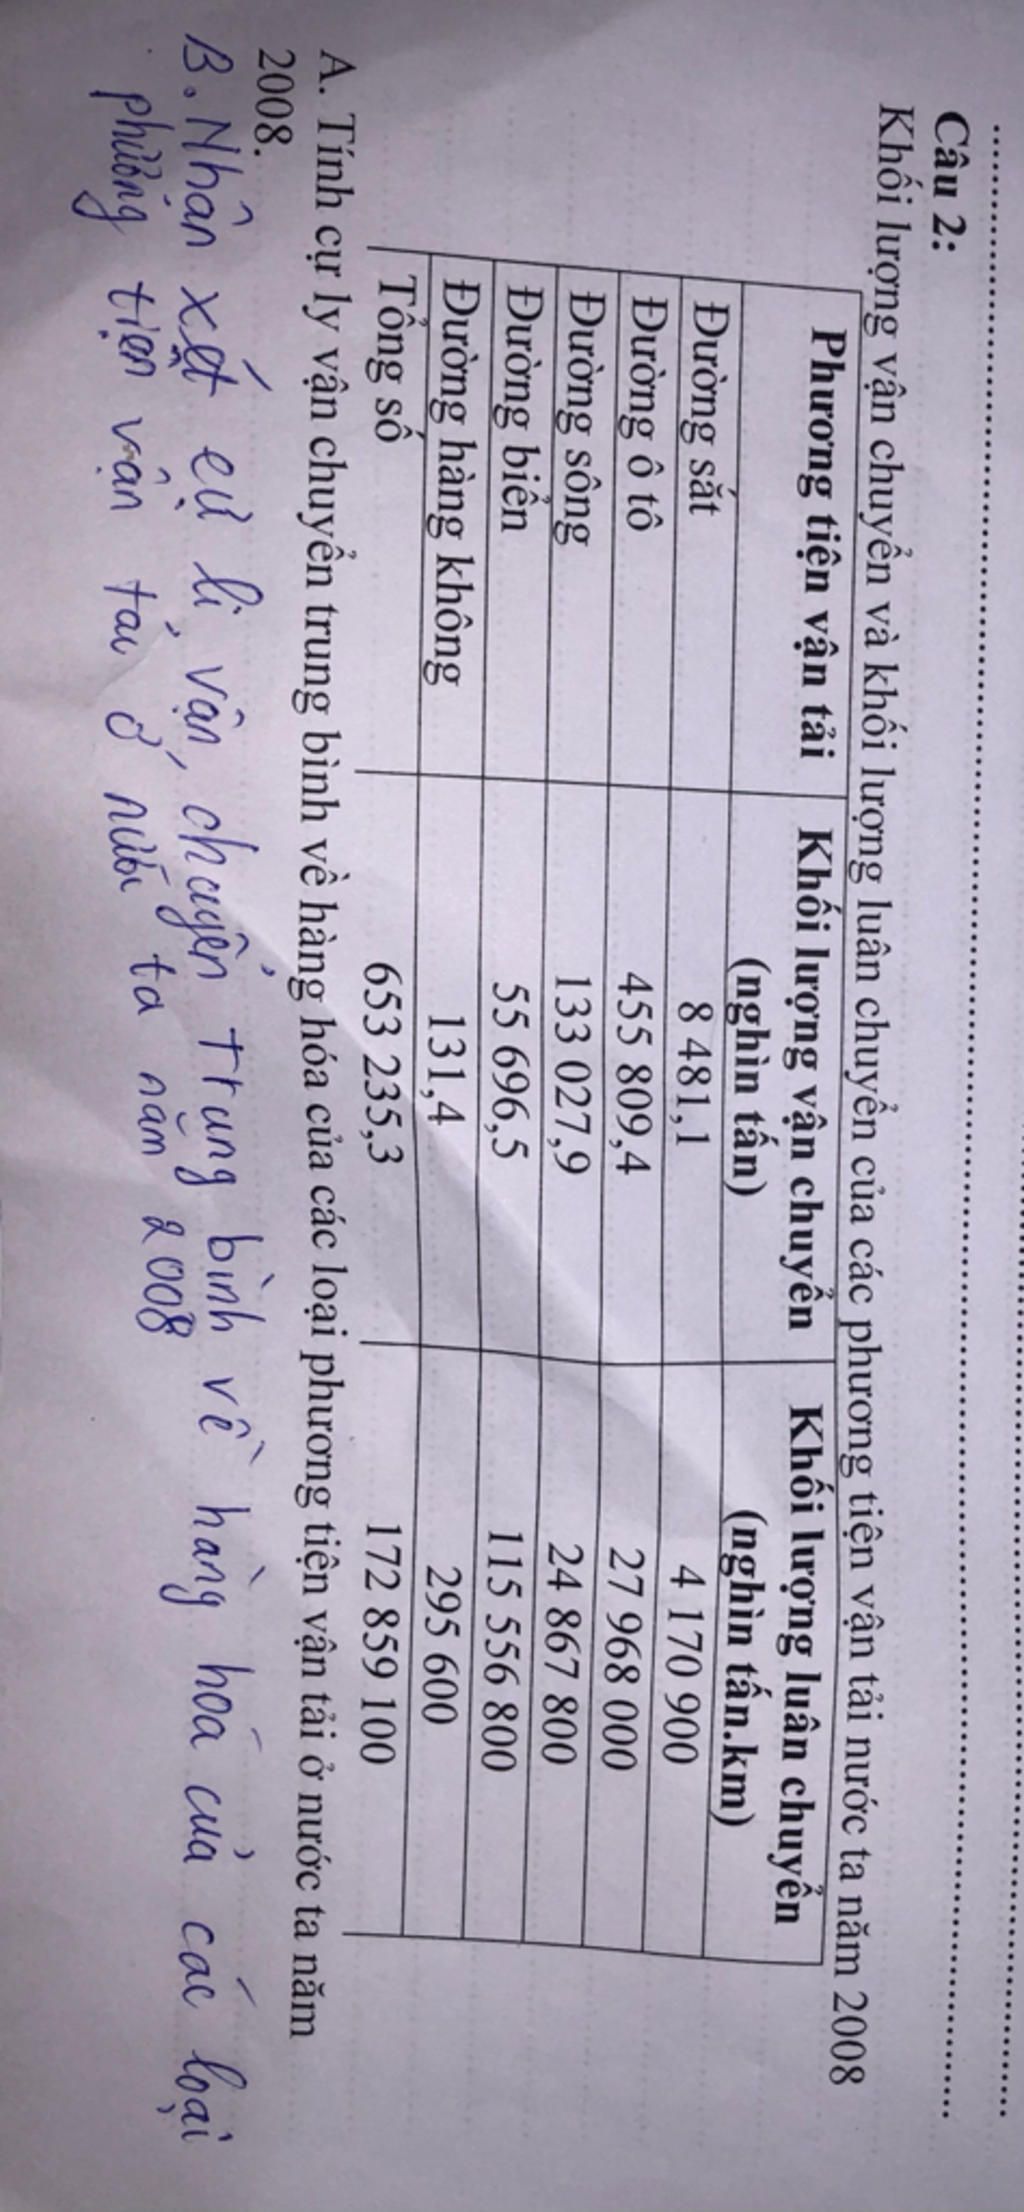 Câu 2:
Khối lượng vận chuyển và khối lượng luân chuyển của các phương tiện vận tải nước ta năm 2008
Phương tiện vận tải Khối lượng vận chuyển (nghìn tấn) Khối lượng luân chuyển (nghìn tấn.km)
Đường sắt 8 481,1 4 170 900
Đường ô tô 455 809,4 27 968 000
Đường sông 133 027,9 24 867 800
Đường biển 55 696,5 115 556 800
Đường hàng không 131,4 295 600
Tổng số 653 235,3 172 859 100
A. Tính cự ly vận chuyển trung bình về hàng hóa của các loại phương tiện vận tải ở nước ta năm
2008.
B. Nhận xét cự li vận chuyển trung bình về hàng hóa của các loại
phương tiện vận tải ở nước ta năm 2008